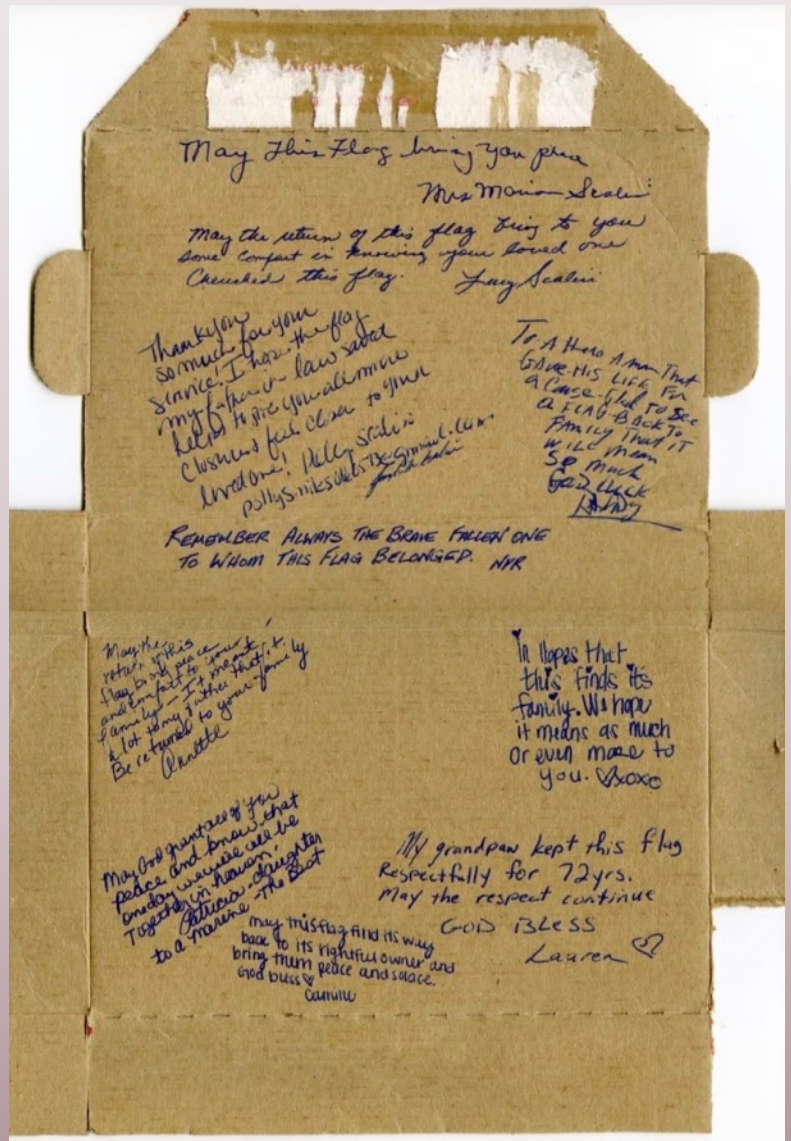 May This Flag bring you peace
Mrs Marian Scalini
May the return of this flag bring to you
some comfort in knowing your loved one
Cherished this flag. Scalini
Thank you
so much for your
service! I hope the flag
my father in law saved
helps to give you all more
closure & feel closer to your
loved one! Polly Scalini
To A Hero A man That
GAVE His LiFe For
a Cause. Glad To See
a FLAG BACK To
FAMiLY THAT iT
WiLL Mean
So Much
Good Luck
REMEMBER ALWAYS THE BRAVE FALLEN ONE
TO WHOM THIS FLAG BELONGED. NYR
May the
return of this
flag bring peace
and comfort to your
family - It meant
a lot to my father that it
Be returned to your family
Annette
In Hopes that
this finds its
family. We hope
it means as much
or even more to
you. ♡xoxo
May God grant all of you
peace and know that
one day we will all be
Together in heaven.
Patricia - daughter
to a marine - The Best
My grandpaw kept this flag
Respectfully for 72yrs.
May the respect continue
GOD BLESS
Lauren ♡
may this flag find its way
back to its rightful owner and
bring them peace and solace.
God bless ♡
Camille